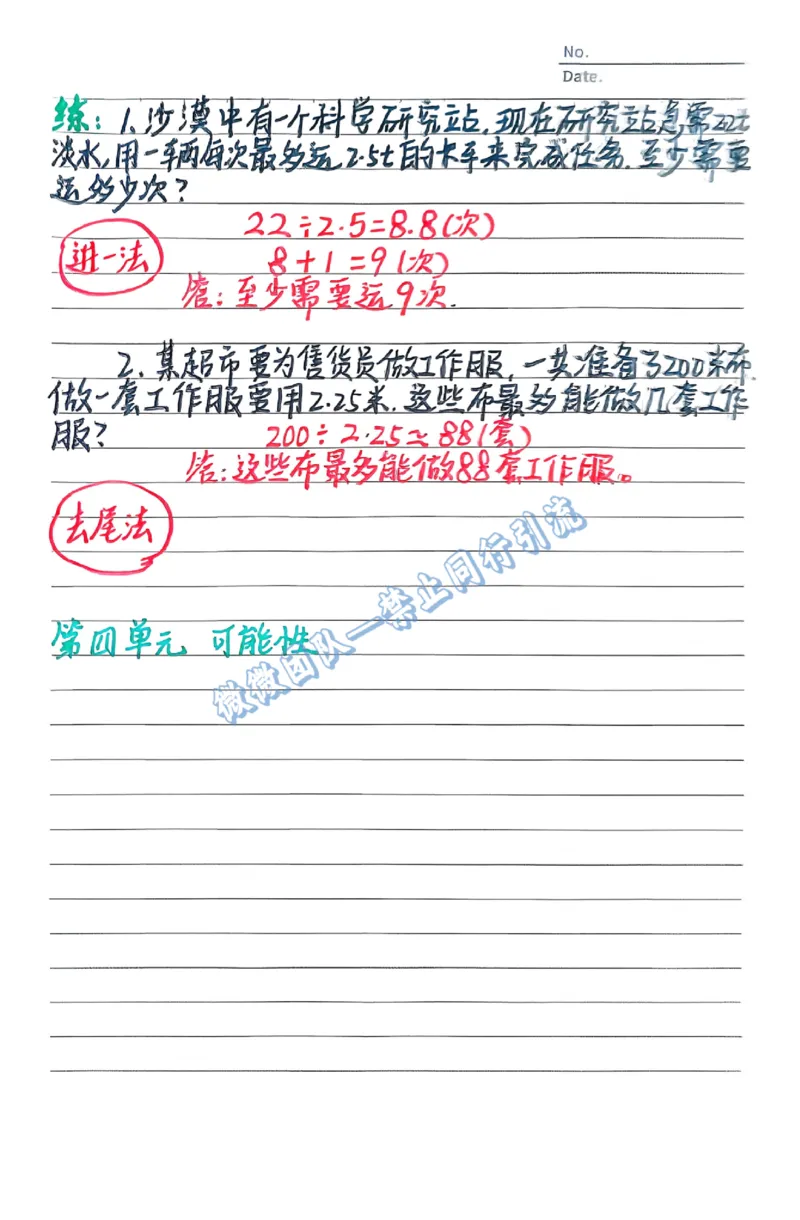 No.
Date.
练：1、沙漠中有一个科学研究站,现在研究站急需22t
淡水,用一车两每次最多运2.5t的卡车来完成任务.至少需要
运多少次？
22÷2.5=8.8(次)
进一法
8+1=9(次)
答：至少需要运9次.
2.某超市要为售货员做工作服，一共准备了200米布.
做一套工作服要用2.25米.这些布最多能做几套工作
服？
200÷2.25≈88(套)
答：这些布最多能做88套工作服。
去尾法
微微团队—禁止同行引流
第四单元 可能性